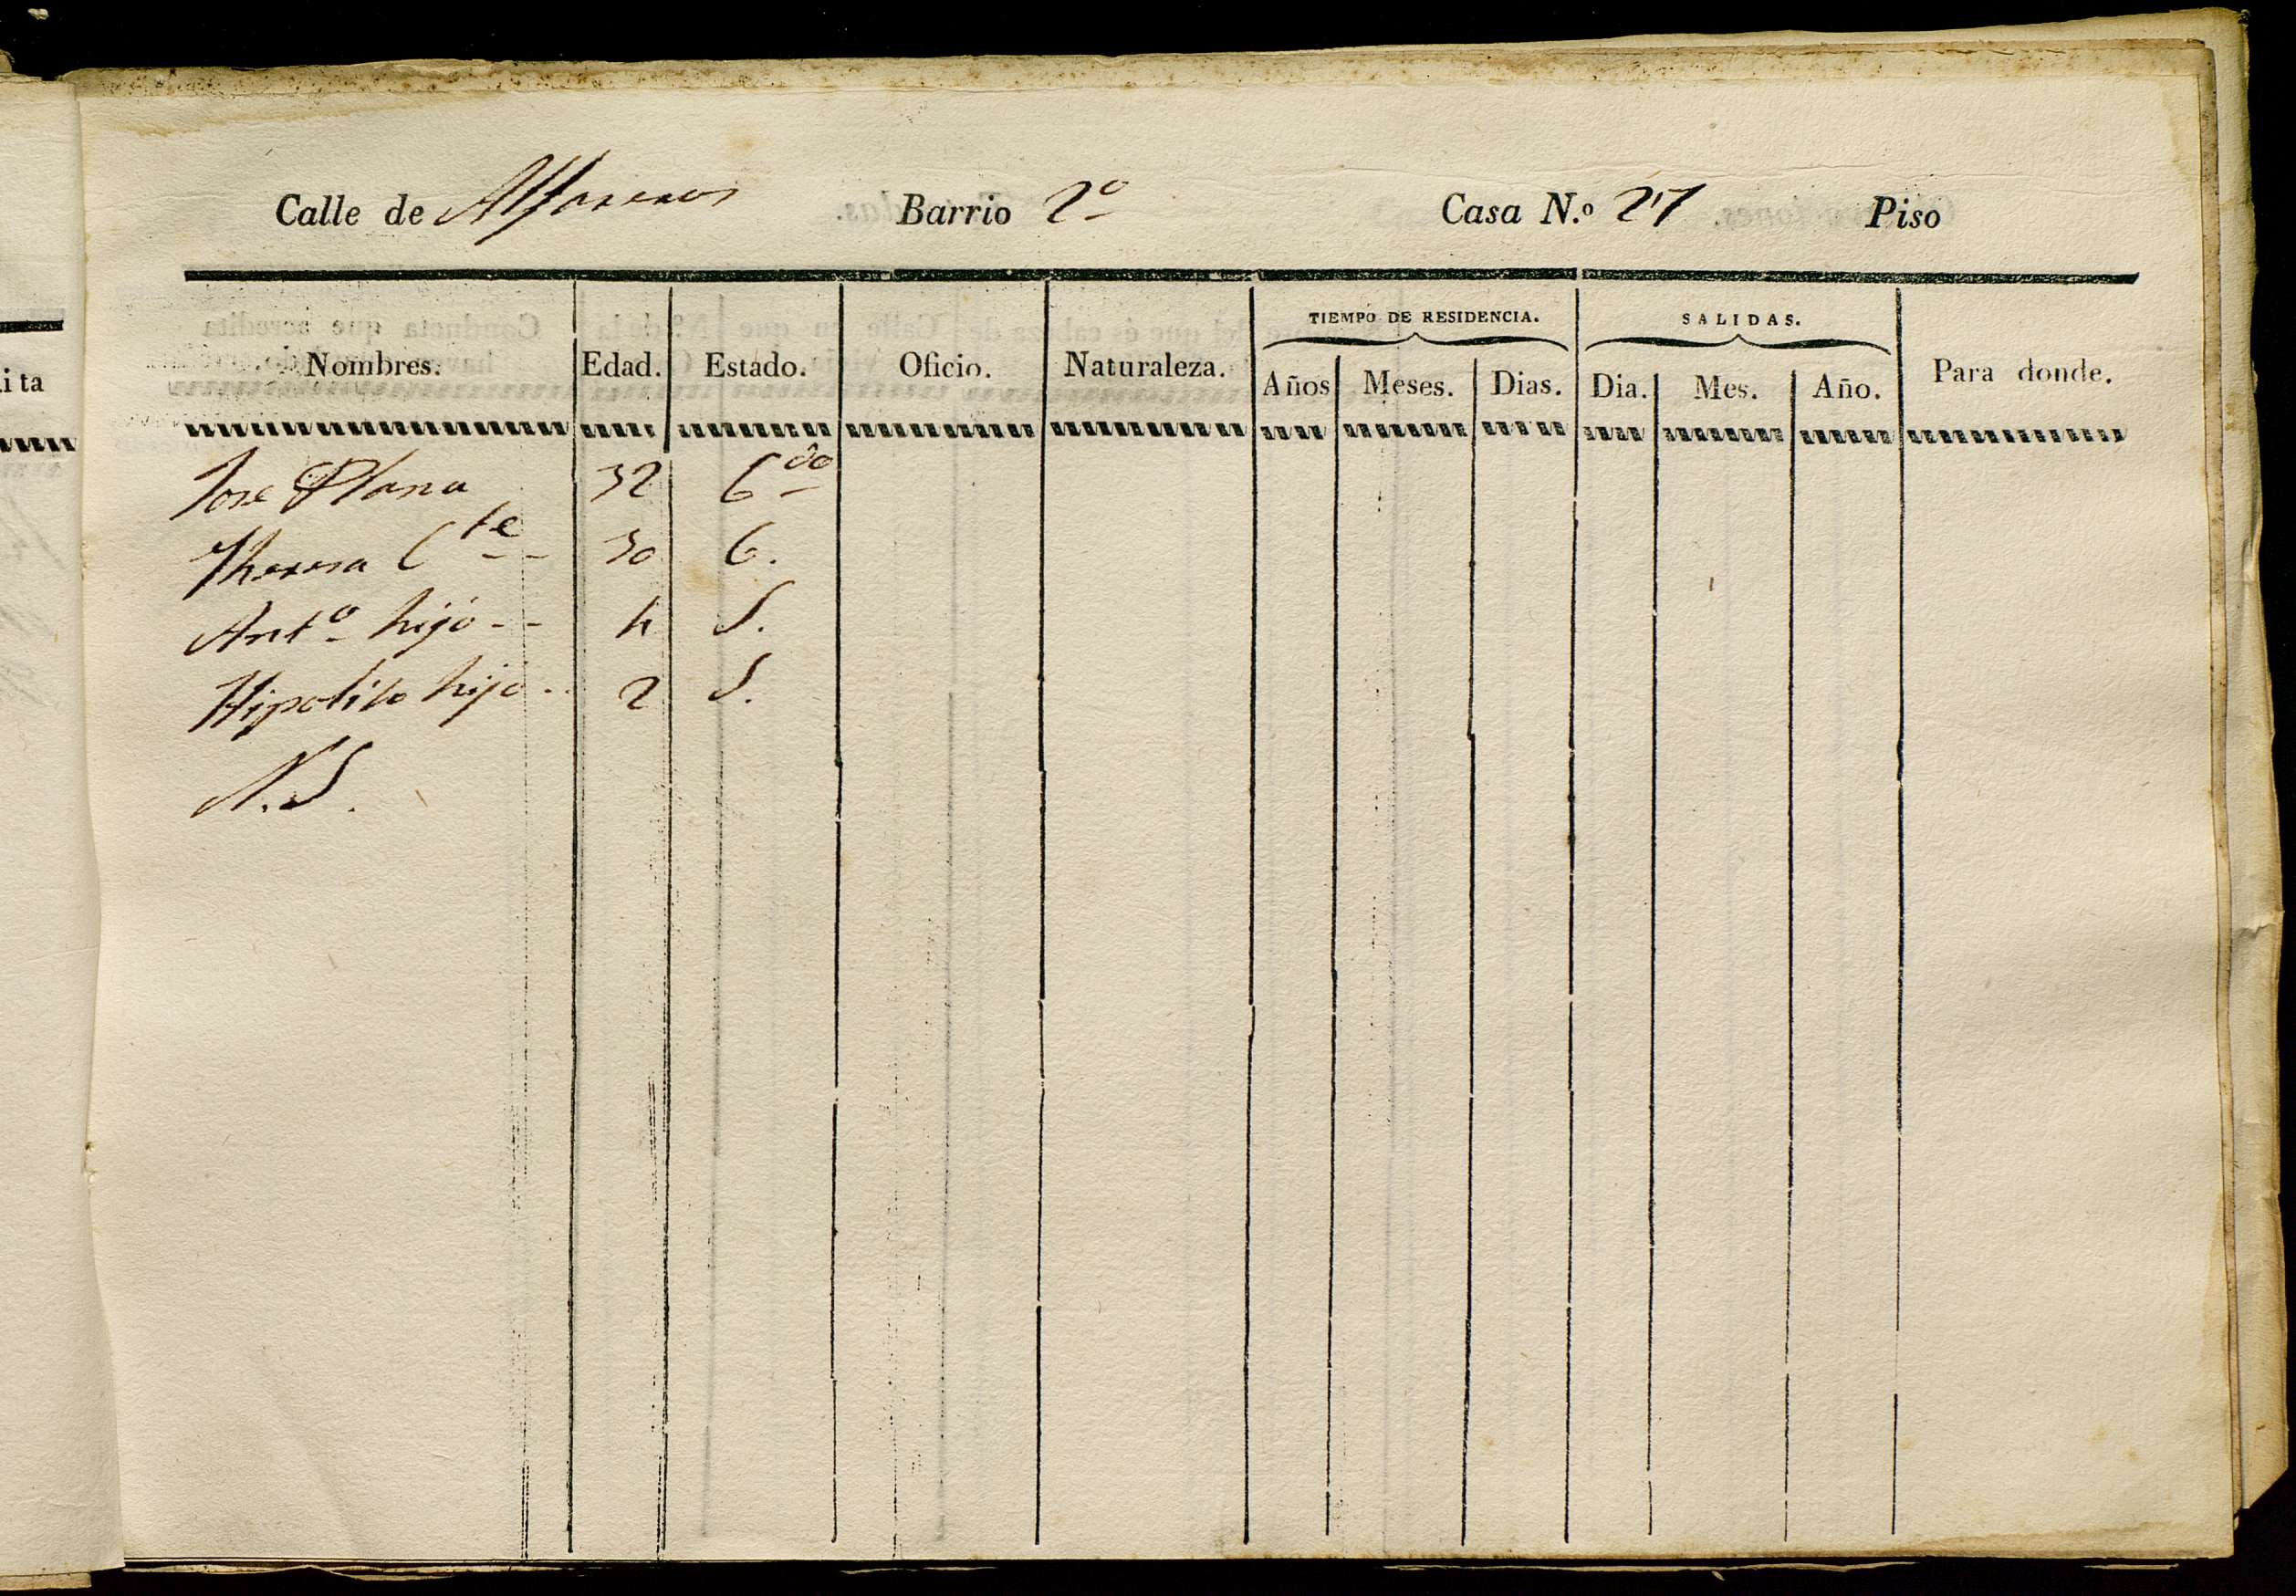 Calle de Alfareros Barrio 2º Casa N.º 27 Piso
TIEMPO DE RESIDENCIA. SALIDAS.
Nombres. Edad. Estado. Oficio. Naturaleza. Años Meses. Dias. Dia. Mes. Año. Para donde.
Jose Plana 32 C.do
Theresa C.te -- 30 C.
Ant.º hijo -- 4 S.
Hipolito hijo -- 2 S.
N. S.
ita